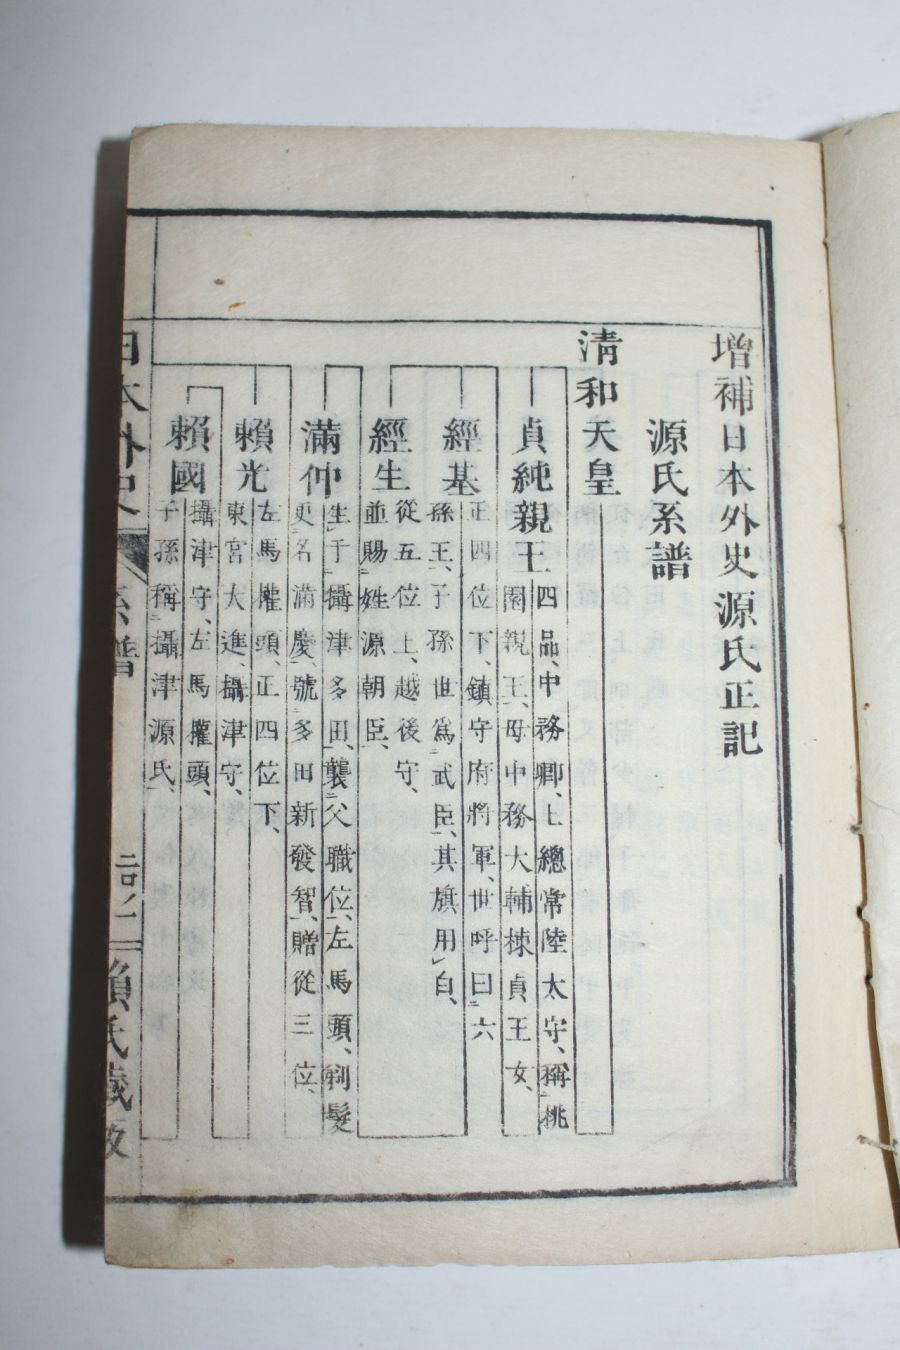 增補日本外史源氏正記
源氏系譜
清和天皇
貞純親王
四品、中務卿、上總常陸太守、稱桃
園親王、母中務大輔棟貞王女、
經基
正四位下、鎮守府將軍、世呼曰六
孫王、子孫世爲武臣、其旗用白、
經生
從五位上、越後守、
並賜姓源朝臣、
滿仲
生于攝津多田、襲父職位、左馬頭、剃髮
更名滿慶、號多田新發智、贈從三位、
賴光
左馬權頭、正四位下、
東宮大進、攝津守、
賴國
攝津守、左馬權頭、
子孫稱攝津源氏、
日本外史
系譜
賴氏藏